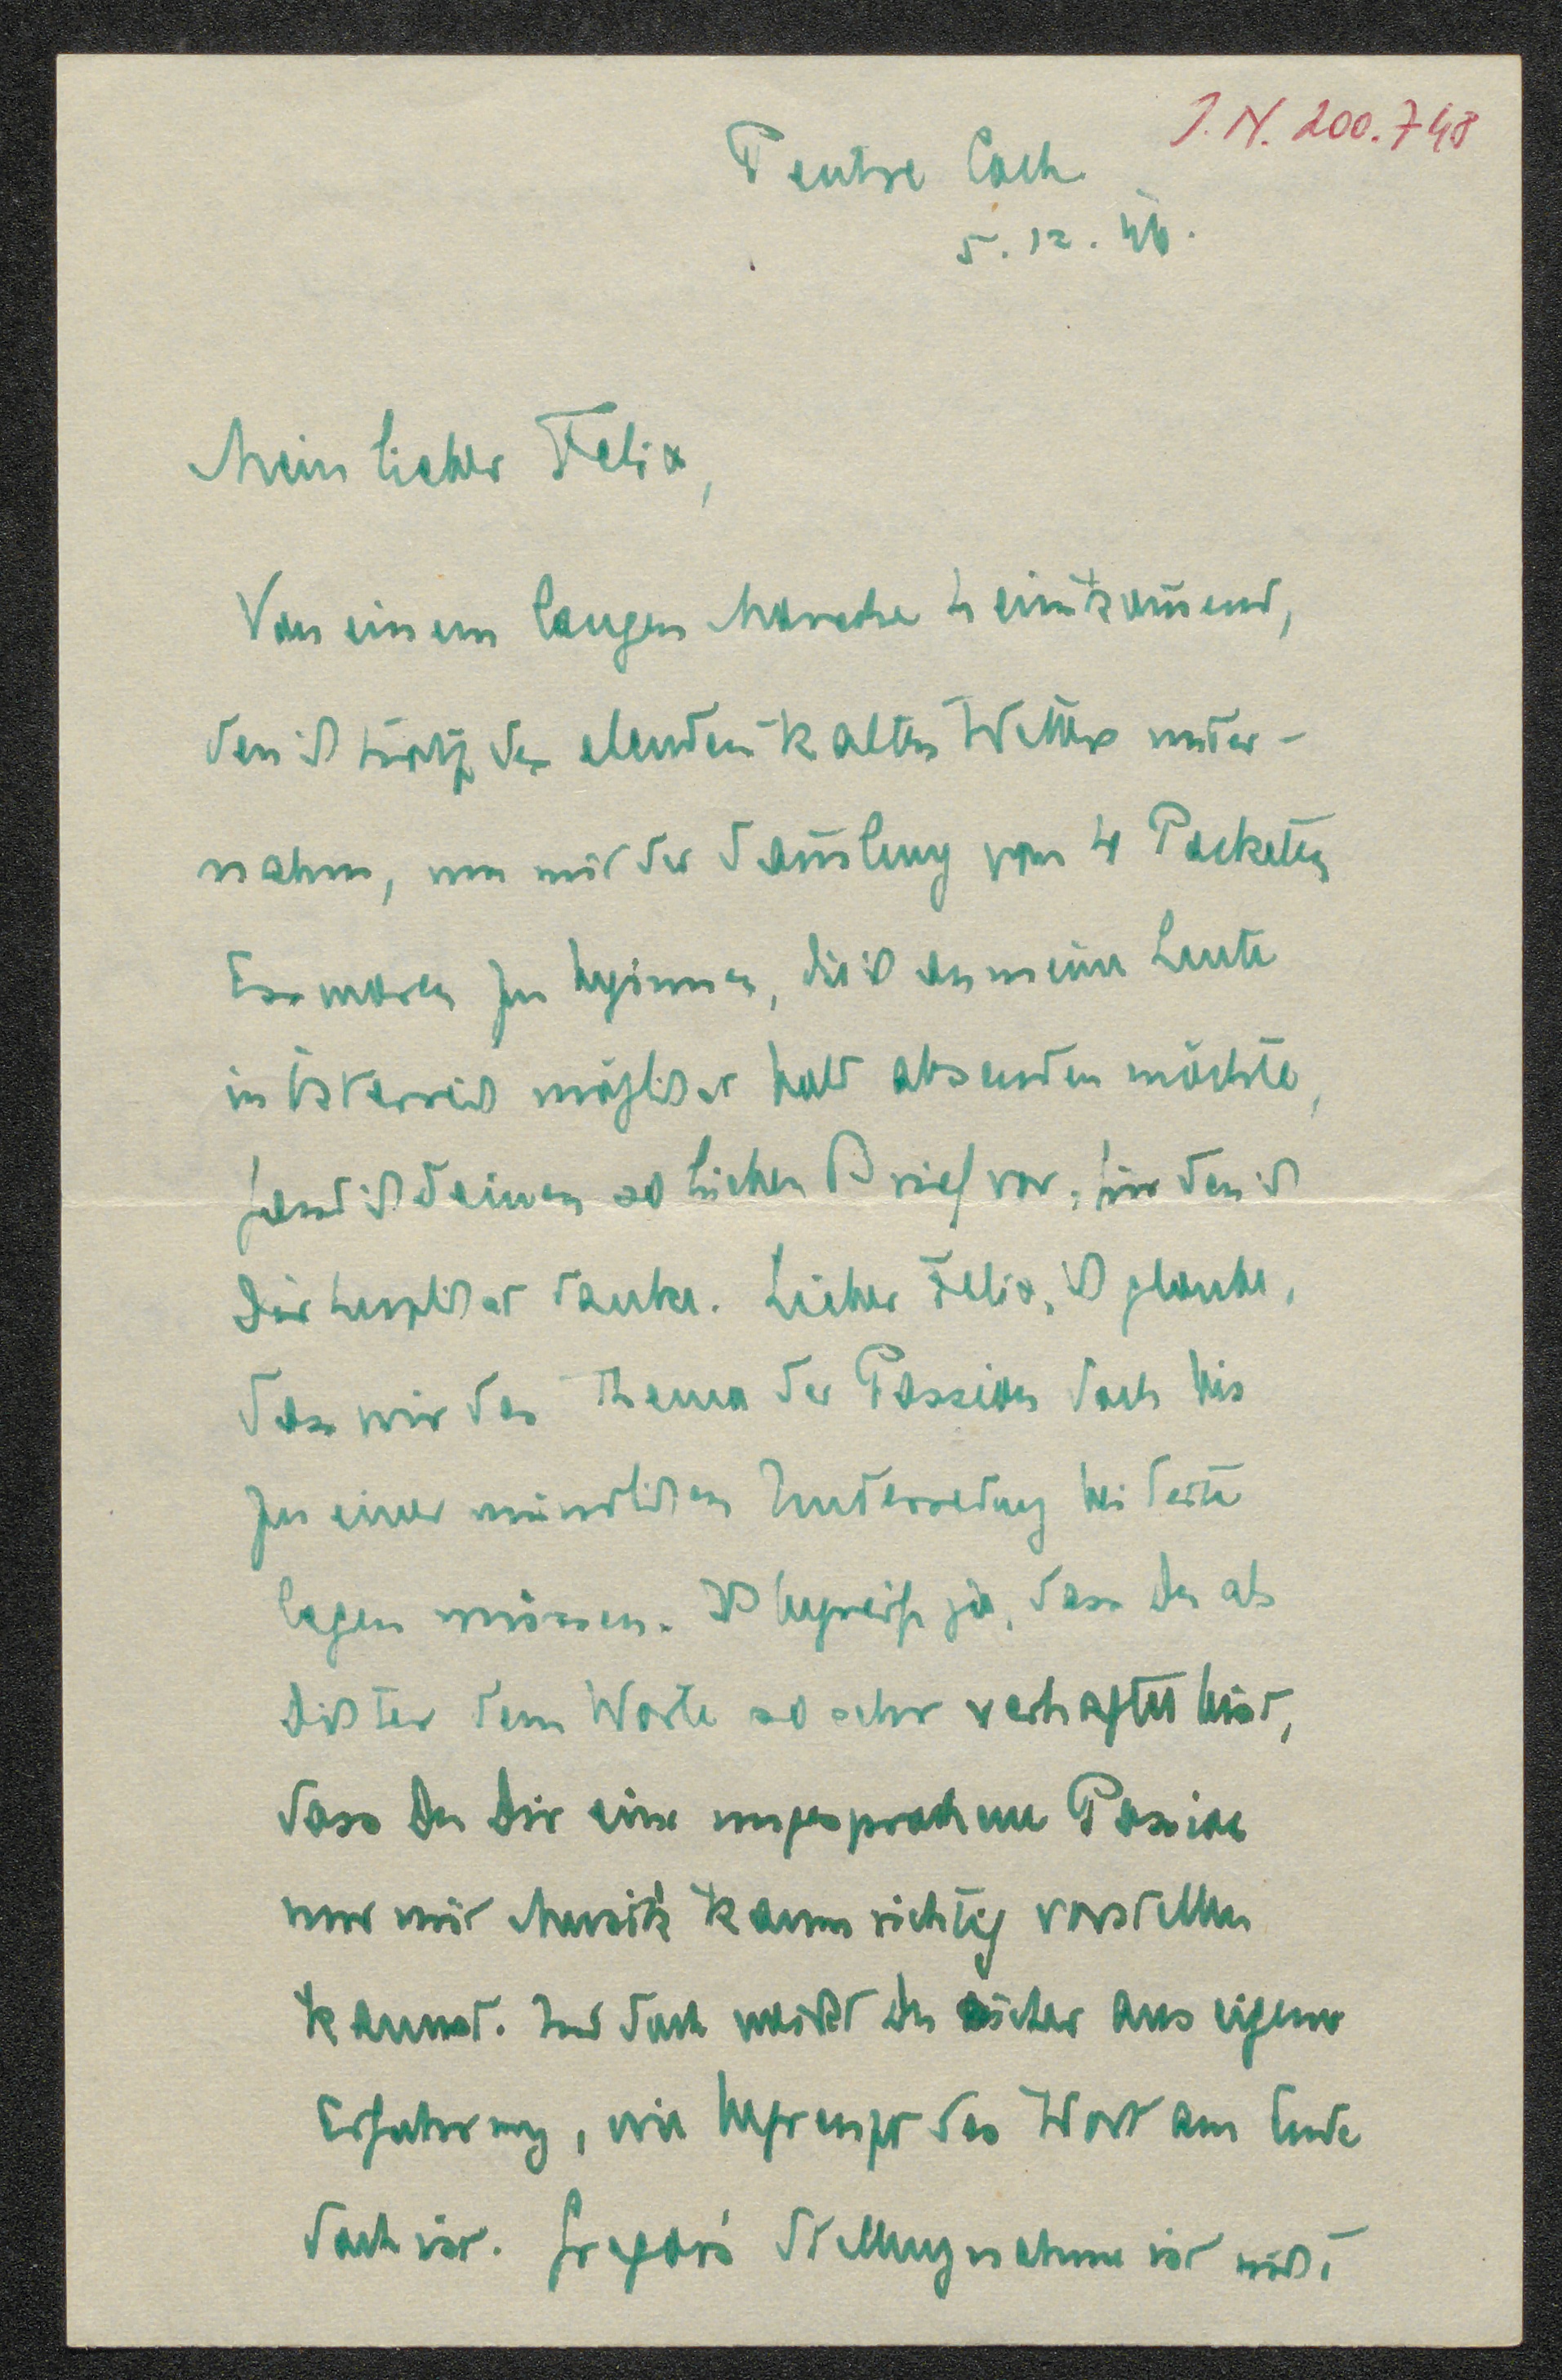 J.N. 200.748
Pentre Coch
5.12.46.
Mein lieber Felix,
Von einem langen Marsche heimkom̄end,
den ich trotz des elenden kalten Wetters unter-
nahm, um mit der Sam̄lung von 4 Packeten
Esswaren zu beginnen, die ich an meine Leute
in Österreich möglichst bald absenden möchte,
fand ich Deinen so lieben Brief vor, für den ich
Dir herzlichst danke. Lieber Felix, ich glaube,
dass wir das Thema der Passion doch bis
zu einer mündlichen Unterredung bei Seite
legen müssen. Ich begreife ja, dass Du als
Dichter dem Worte so sehr verhaftet bist,
dass Du Dir eine ungesprochene Passion
nur mit Musik kaum richtig vorstellen
kannst. Und doch weißt Du sicher aus eigener
Erfahrung, wie begrenzt das Wort am Ende
doch ist. Gregor's Stellungnahme ist nicht